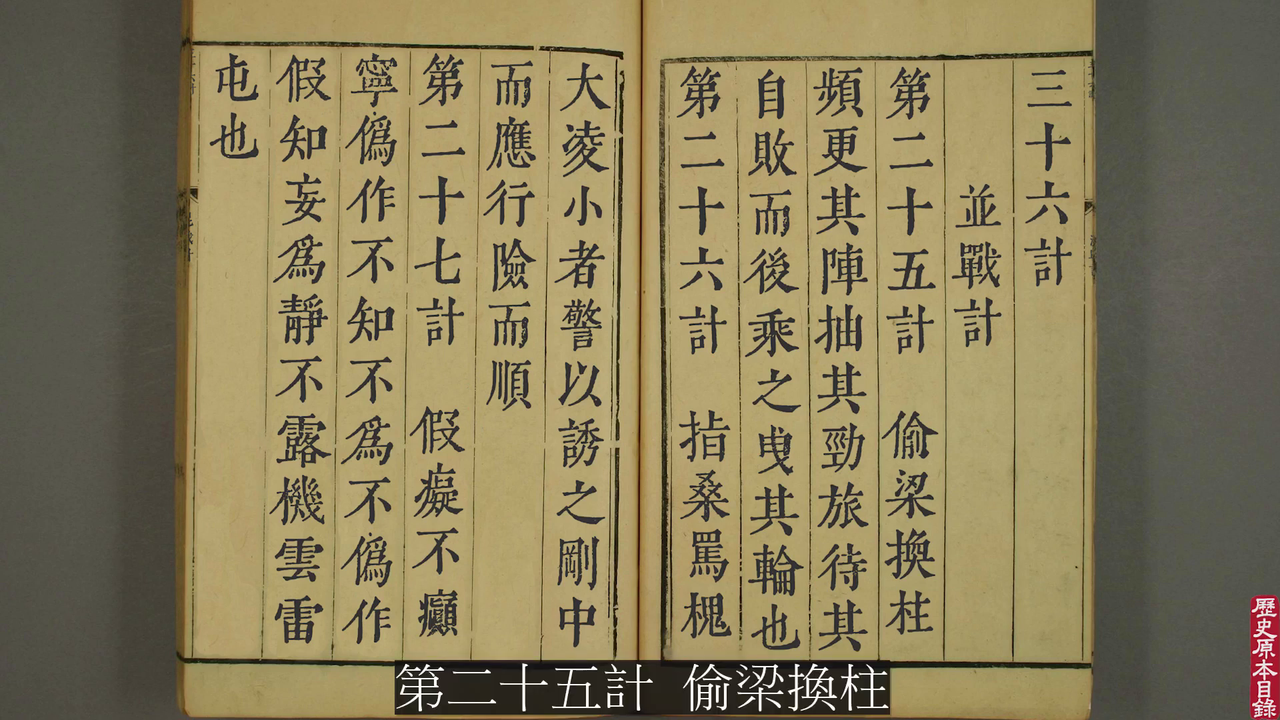 三十六計
並戰計
第二十五計 偷梁換柱
頻更其陣抽其勁旅待其
自敗而後乘之曳其輪也
第二十六計 指桑罵槐
大凌小者警以誘之剛中
而應行險而順
第二十七計 假癡不癲
寧僞作不知不爲不僞作
假知妄爲靜不露機雲雷
屯也
第二十五計 偷梁換柱
歷史原本目錄